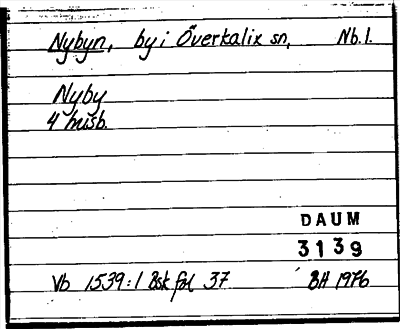 Nybyn, by i Överkalix sn, Nb.l.
Nyby
4 husb.
DAUM
3139
Vb 1539:1 Bsk fol 37 BH 1976